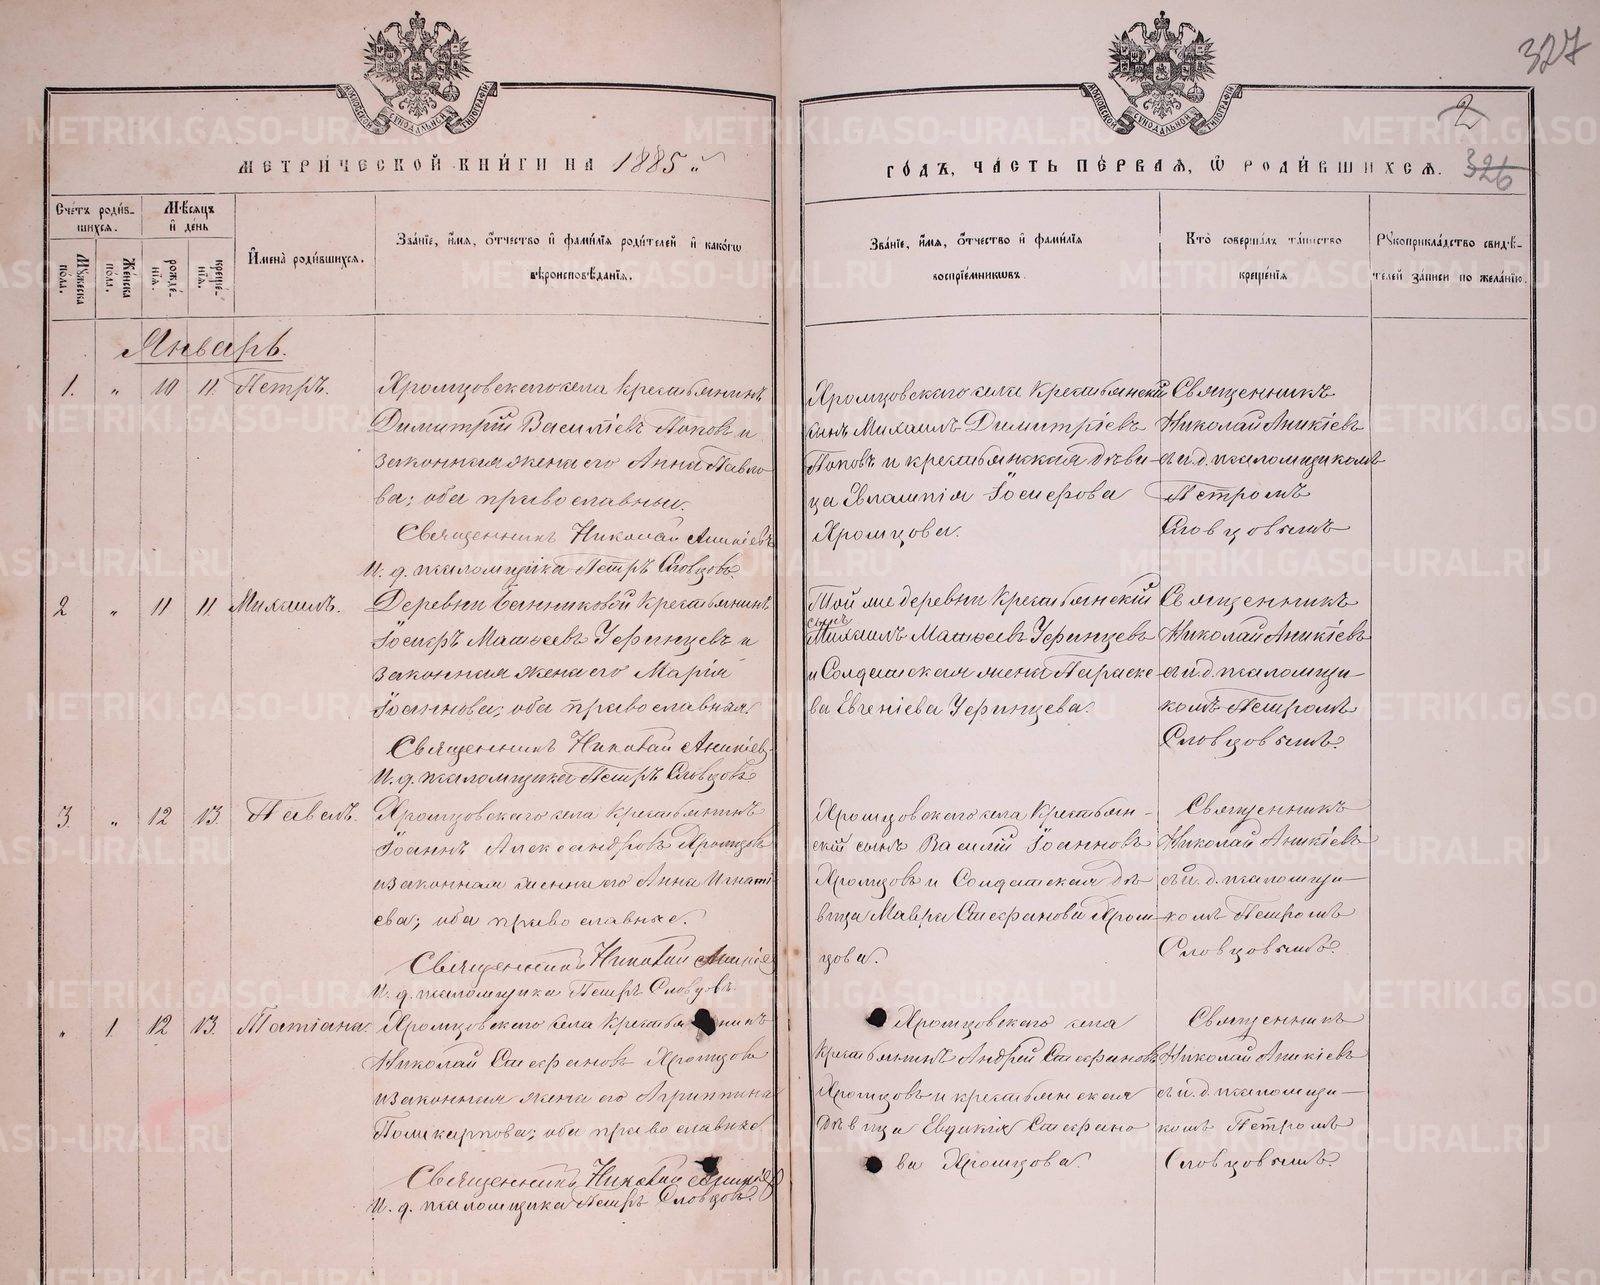 327
2
326
МЕТРИ́ЧЕСКОЙ КНИ́ГИ НА 1885
ГО́ДЪ, ЧА́СТЬ ПЕ́РВАЯ, Ѡ РОДИ́ВШИХСЯ.
Сче́тъ роди́в-
шихся.
Му́жеска
пола.
Же́нска
пола.
Мѣ́сяцъ
и де́нь
рожде́-
нїя.
креще́-
нїя.
И҆мена̀ роди́вшихся.
Зва́нїе, и҆́мя, ѻ҆́тчество и҆ фами́лїя роди́телей и҆ како́гѡ
вѣроисповѣ́данїя.
Зва́нїе, и҆́мя, ѻ҆́тчество и҆ фами́лїя
воспрїе́мниковъ.
Кто̀ соверша́лъ та́инство
креще́нїя
Рꙋкоприкла́дство свидѣ́-
телей за́писи по жела́нїю.
Январь.
1. " 10 11. Петръ.
Хромцовскаго села крестьянинъ
Димитрій Василіевъ Поповъ и
законная жена его Анна Павло
ва; оба православные.
Священникъ Николай Аникіевъ
И. д. псаломщика Петръ Словцовъ.
Хромцовскаго села крестьянскій
сынъ Михаилъ Димитріевъ
Поповъ и крестьянская дѣви-
ца Евлампія Іосифова
Хромцова.
Священникъ
Николай Аникіевъ
съ и. д. псаломщикомъ
Петромъ
Словцовымъ
2 " 11 11 Михаилъ.
Деревни Банниковой крестьянинъ
Іосифъ Матѳеевъ Уфинцевъ и
законная жена его Марія
Іоаннова; оба православные.
Священникъ Николай Аникіевъ
И. д. псаломщика Петръ Словцовъ
Той же деревни крестьянскій
сынъ
Михаилъ Матѳеевъ Уфинцевъ
и Солдатская жена Параске
ва Евгеніева Уфинцева.
Священникъ
Николай Аникіевъ
съ и. д. псаломщи-
комъ Петромъ
Словцовымъ.
3. " 12 13. Павелъ.
Хромцовскаго села крестьянинъ
Іоаннъ Александровъ Хромцовъ
и законная жена его Анна Игнаті
ева; оба православные.
Священникъ Николай Аникіев
И. д. псаломщика Петръ Словцовъ
Хромцовскаго села крестьян-
скій сынъ Василій Іоанновъ
Хромцовъ и Солдатская дѣ
вица Мавра Стефанова Хром-
цова.
Священникъ
Николай Аникіевъ
съ и. д. псаломщи-
комъ Петромъ
Словцовымъ.
" 1 12 13. Татіана.
Хромцовскаго села крестьянинъ
Николай Стефановъ Хромцовъ
и законная жена его Агриппина
Поликарпова; оба православные
Священникъ Николай Аникіев
И. д. псаломщика Петръ Словцовъ.
Хромцовскаго села
крестьянинъ Андрей Стефановъ
Хромцовъ и крестьянская
дѣвица Евдокія Стефано
ва Хромцова.
Священникъ
Николай Аникіевъ
съ и. д. псаломщи-
комъ Петромъ
Словцовымъ.